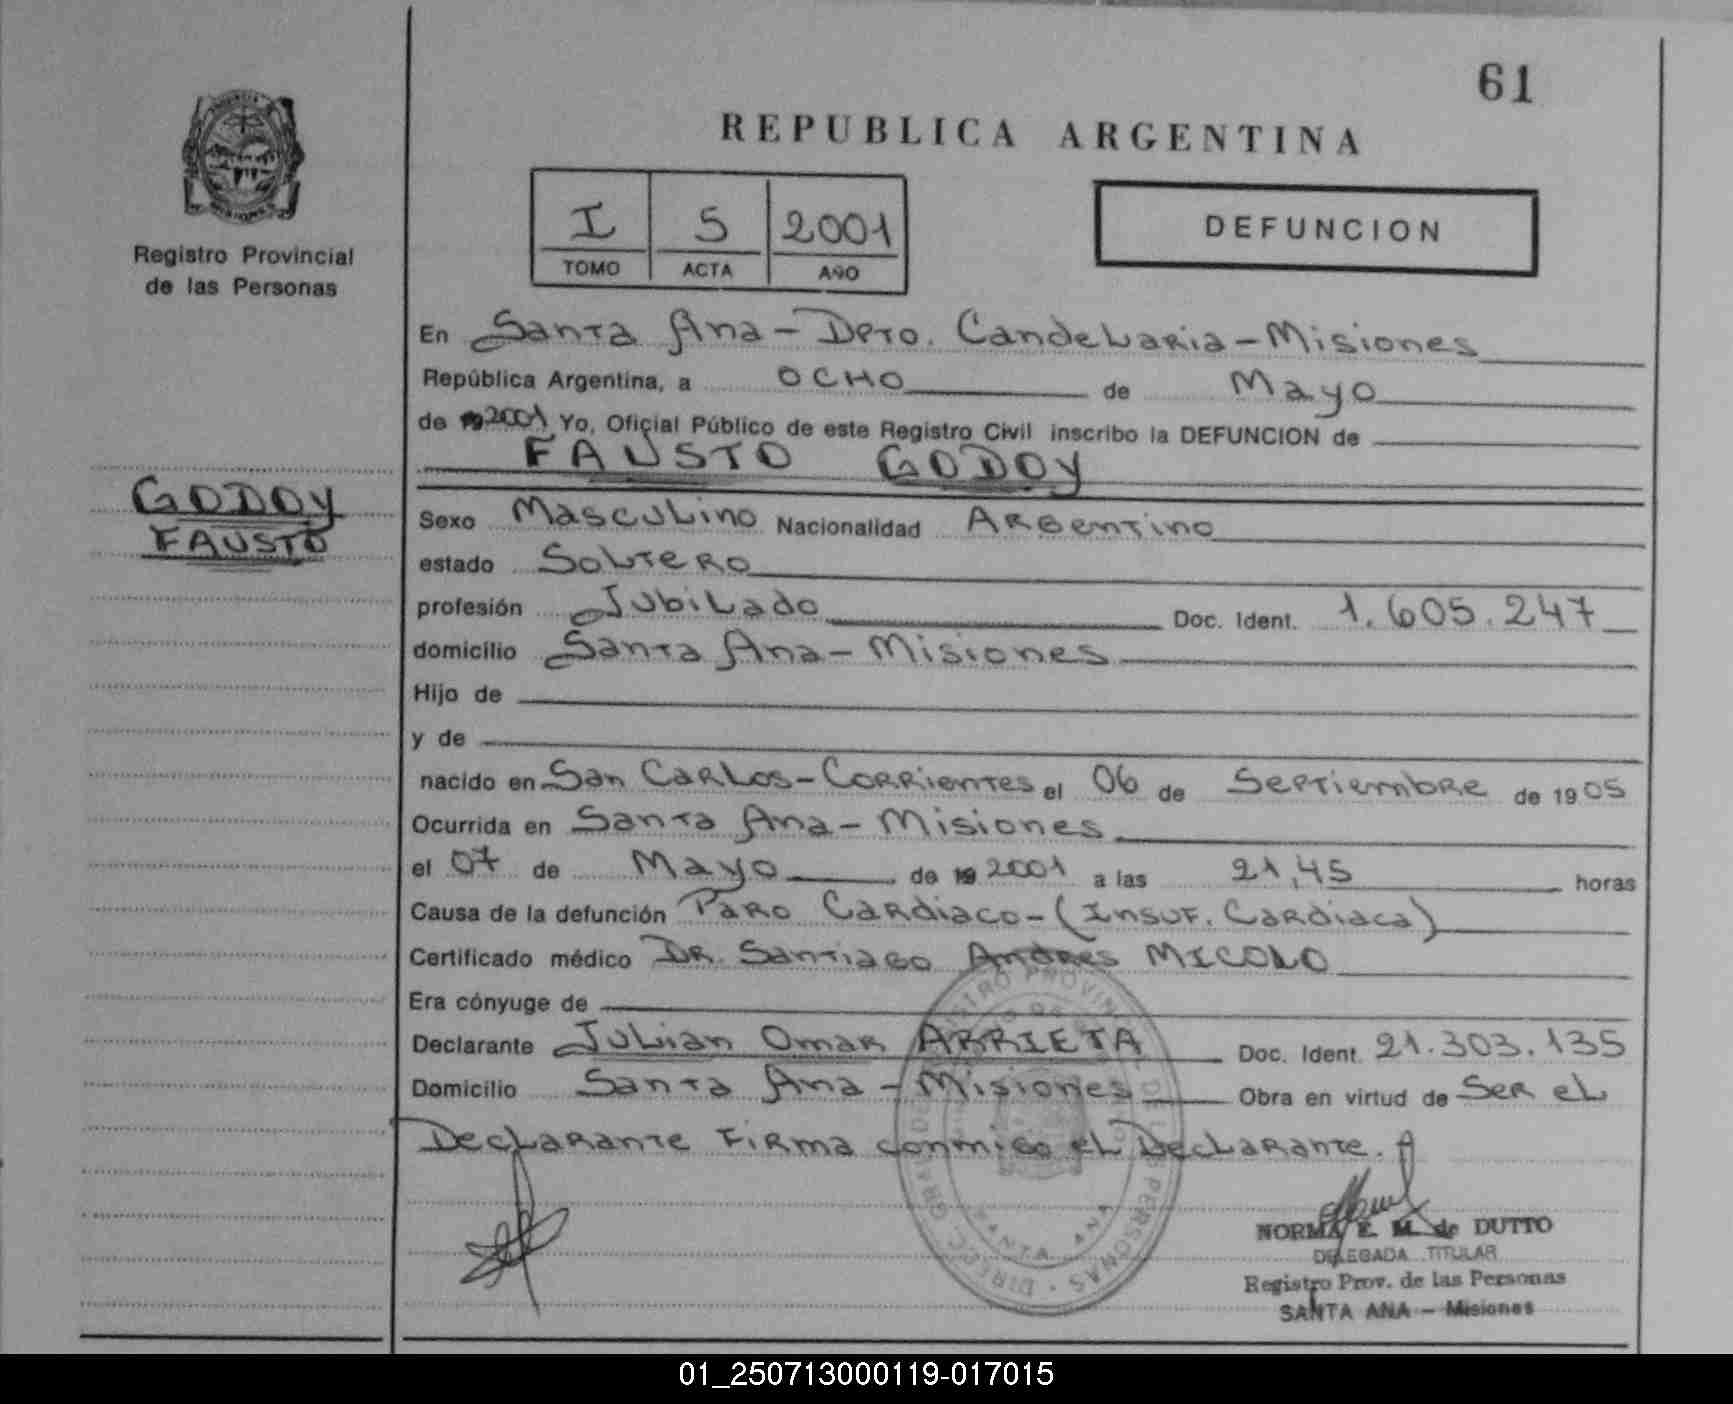 61
REPUBLICA ARGENTINA
PROVINCIA DE MISIONES
Registro Provincial
de las Personas
I 5 2001
TOMO ACTA AÑO
DEFUNCION
En Santa Ana - Dpto. Candelaria - Misiones
República Argentina, a OCHO de Mayo
de 192001 Yo, Oficial Público de este Registro Civil inscribo la DEFUNCION de
FAUSTO GODOY
GODOY
FAUSTO
Sexo Masculino Nacionalidad Argentino
estado Soltero
profesión Jubilado Doc. Ident. 1.605.247
domicilio Santa Ana - Misiones
Hijo de
y de
nacido en San Carlos - Corrientes el 06 de Septiembre de 1905
Ocurrida en Santa Ana - Misiones
el 07 de Mayo de 19 2001 a las 21,45 horas
Causa de la defunción Paro Cardiaco - (Insuf. Cardiaca)
Certificado médico Dr. Santiago Andres MICOLO
Era cónyuge de
Declarante Julian Omar ARRIETA Doc. Ident. 21.303.135
Domicilio Santa Ana - Misiones Obra en virtud de Ser el
Declarante Firma conmigo el Declarante.
SANTA ANA
NORMA E. M. de DUTTO
DELEGADA TITULAR
Registro Prov. de las Personas
SANTA ANA - Misiones
01_250713000119-017015